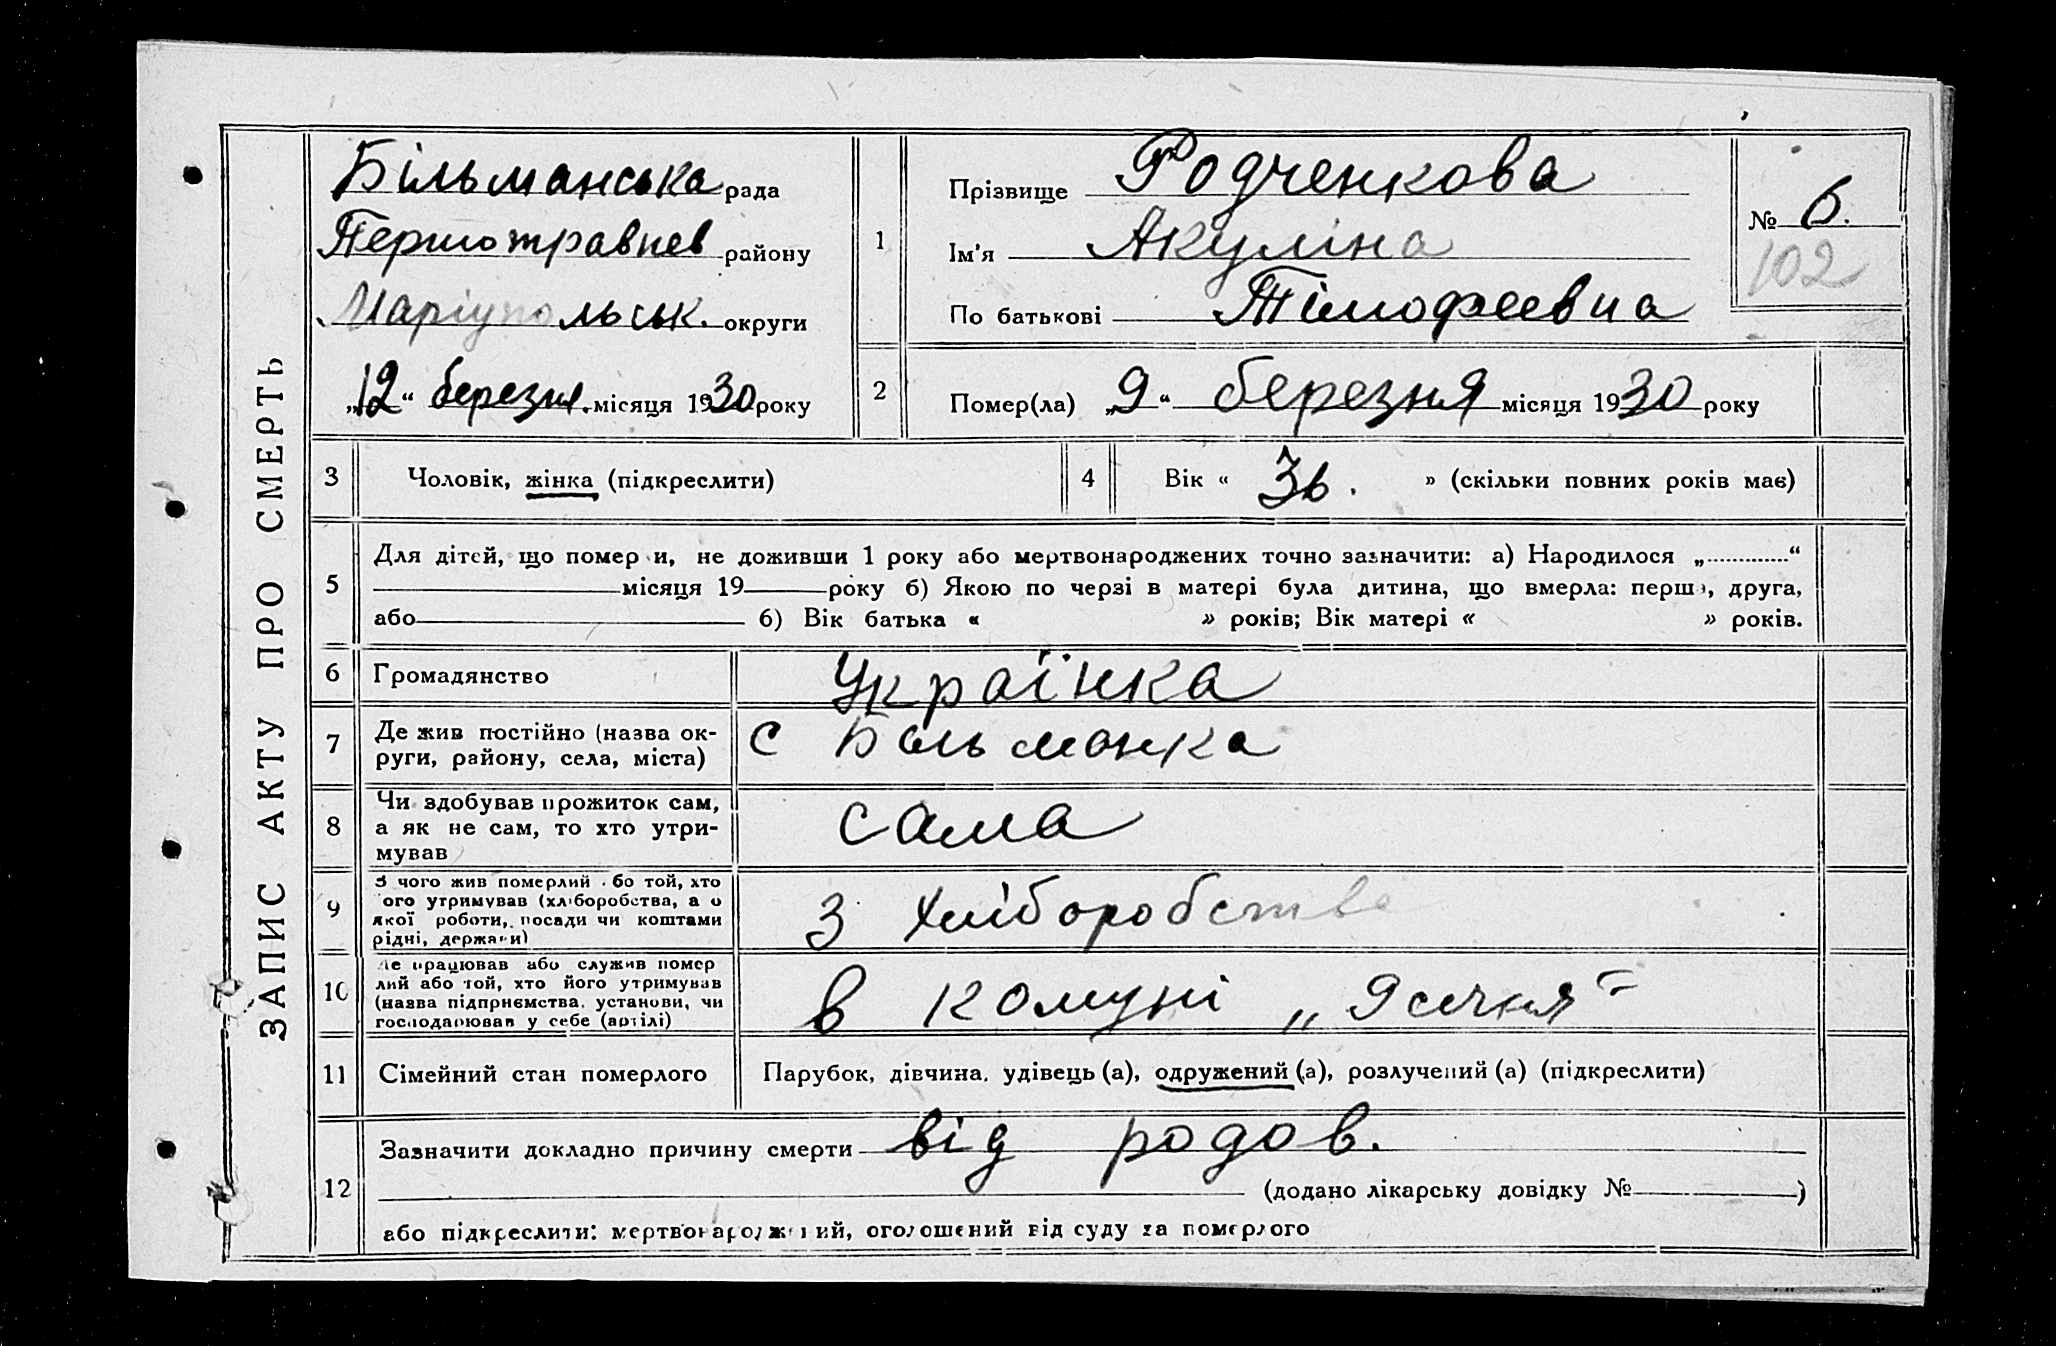 ЗАПИС АКТУ ПРО СМЕРТЬ
Більманська рада
Першотравнев району
Маріупольськ. округи
„12“ березня. місяця 1930 року
1
Прізвище Родченкова
Ім'я Акуліна
По батькові Тімофеевна
№ 6.
102
2
Помер(ла) „9“ березня місяця 1930 року
3 Чоловік, жінка (підкреслити)
4 Вік « 36. » (скільки повних років має)
5
Для дітей, що померли, не доживши 1 року або мертвонароджених точно зазначити: а) Народилося „ “
місяця 19 року б) Якою по черзі в матері була дитина, що вмерла: перша, друга,
або б) Вік батька « » років; Вік матері « » років.
6 Громадянство Українка
7 Де жив постійно (назва ок-
руги, району, села, міста)
с Більманка
8
Чи здобував прожиток сам,
а як не сам, то хто утри-
мував
сама
9
З чого жив померлий або той, хто
його утримував (хліборобства, а о
якої роботи, посади чи коштами
рідні, держави)
З Хліборобства
10
Де працював або служив помер
лий або той, хто його утримував
(назва підприємства, установи, чи
господарював у себе (артілі)
в комуні „9 січня“
11 Сімейний стан померлого
Парубок, дівчина, удівець (а), одружений (а), розлучений (а) (підкреслити)
12
Зазначити докладно причину смерти від родов.
(додано лікарську довідку № )
або підкреслити: мертвонароджений, оголошений від суду за померлого